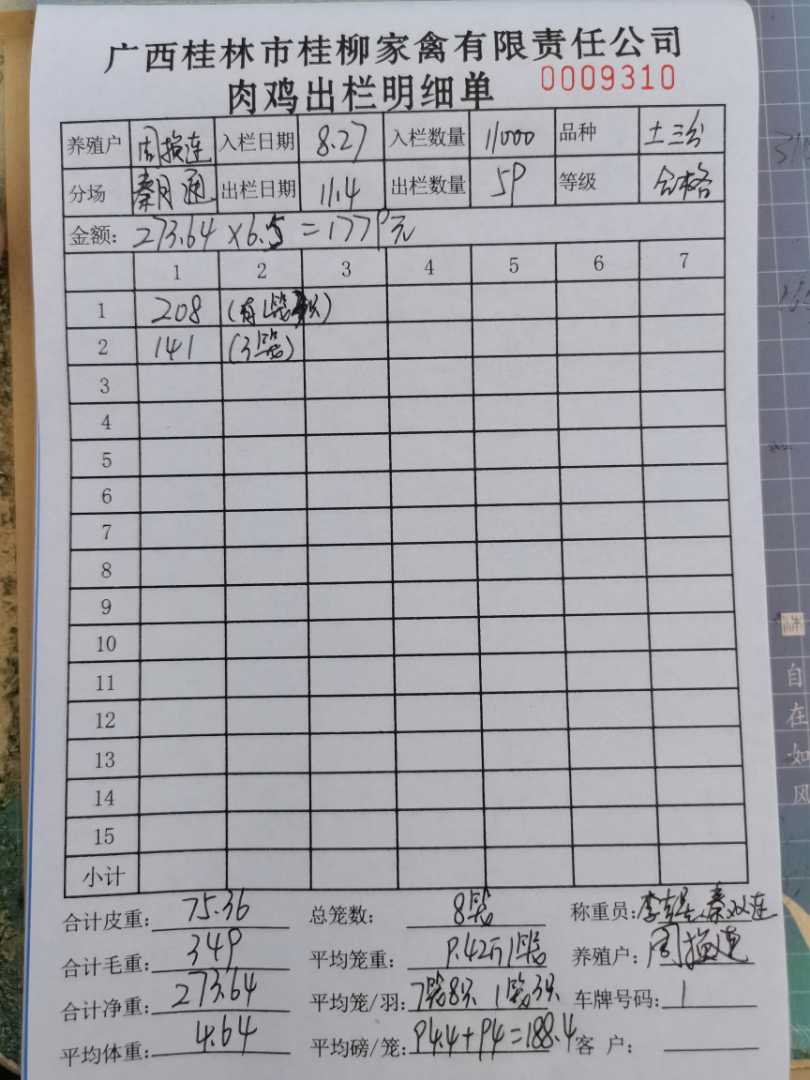 广西桂林市桂柳家禽有限责任公司
肉鸡出栏明细单 0009310
养殖户 周 连 入栏日期 8.27 入栏数量 11000 品种 土三
分场 秦月通 出栏日期 11.4 出栏数量 59 等级 合格
金额: 273.64×6.5=1779元
1 2 3 4 5 6 7
1 208 (有1笼 只)
2 141 (3笼)
3
4
5
6
7
8
9
10
11
12
13
14
15
小计
合计皮重: 75.36 总笼数: 8笼 称重员: 李 秦双连
合计毛重: 349 平均笼重: 9.42斤/笼 养殖户: 周 连
合计净重: 273.64 平均笼/羽: 7笼8只 1笼3只 车牌号码: 1
平均体重: 4.64 平均磅/笼: 94.4+94=188.4 客户:
自在如风